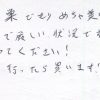 業でもりめちゃ美
で厳しい状況で
てください!
行ったら買います!